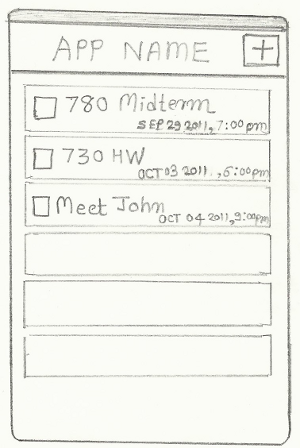 APP NAME
780 Midterm
SEP 29 2011, 7:00pm
730 HW
OCT 03 2011, 6:00pm
Meet John
OCT 04 2011, 9:00pm